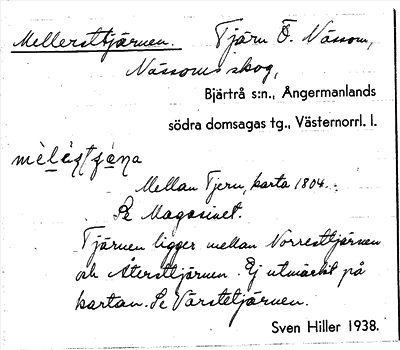 Mellersttjärnen. Tjärn Ö. Nässom,
Nässoms skog,
Bjärtrå s:n., Ångermanlands
södra domsagas tg., Västernorrl. l.
Mellan Tjern, karta 1804.
Se Magasinet.
Tjärnen ligger mellan Norresttjärnen
och Återsttjärnen. Ej utmärkt på
kartan. Se Värstetjärnen.
Sven Hiller 1938.